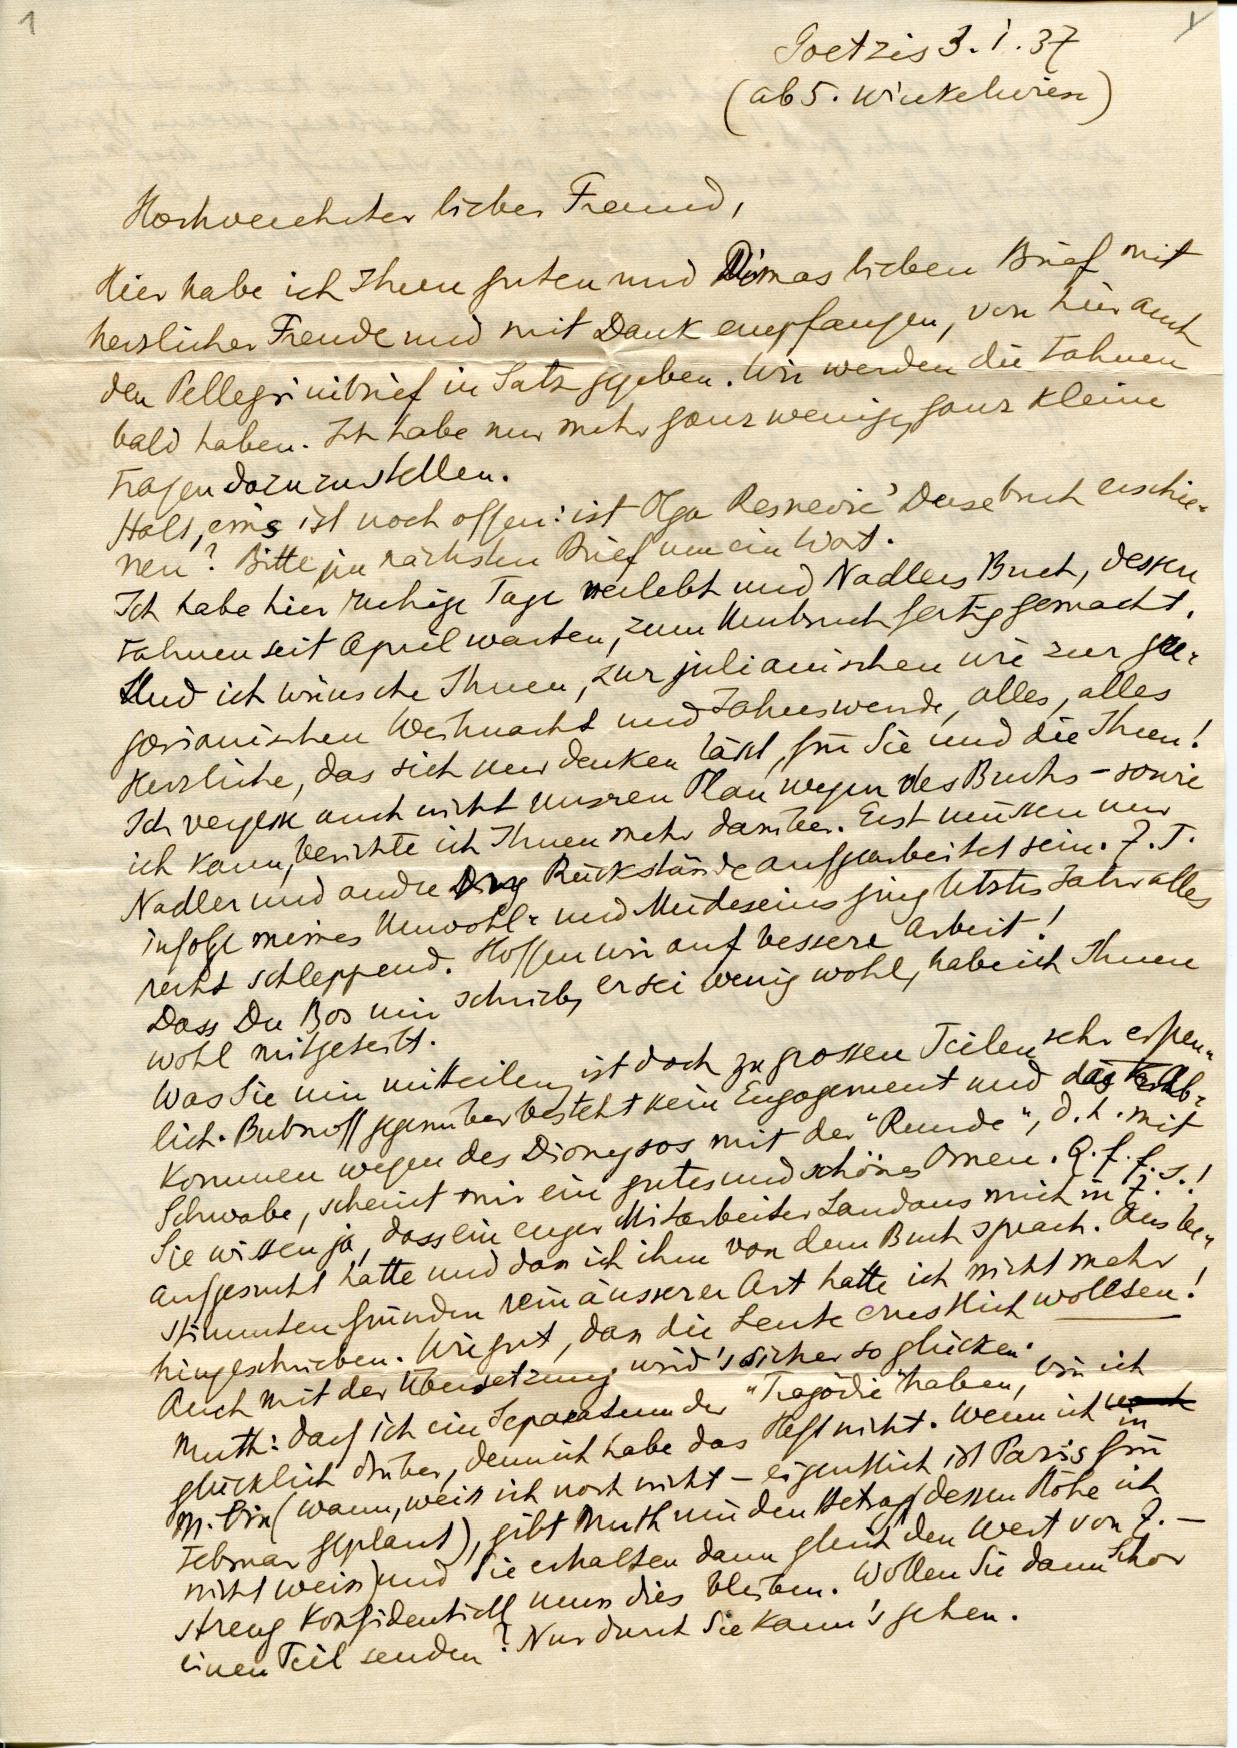 1
Goetzis 3. 1. 37
(ab 5. Winkelwiese)
Hochverehrter lieber Freund,
Hier habe ich Ihren guten und Dimas lieben Brief mit
herzlicher Freude und mit Dank empfangen, von hier auch
den Pellegrinibrief in Satz gegeben. Wir werden die Fahnen
bald haben. Ich habe nur mehr ganz wenige, ganz kleine
Fragen dazu zu stellen.
Halt, eins ist noch offen: ist Olga Resnevic' Dusebuch erschie-
nen? Bitte im nächsten Brief um ein Wort.
Ich habe hier ruhige Tage verlebt und Nadlers Buch, dessen
Fahnen seit April warten, zum Umbruch fertig gemacht.
Und ich wünsche Ihnen, zur julianischen wie zur gre-
gorianischen Weihnacht und Jahreswende, alles, alles
Herzliche, das sich nur denken lässt, für Sie und die Ihren!
Ich vergesse auch nicht unsren Plan wegen des Buchs - sowie
ich kann, berichte ich Ihnen mehr darüber. Erst müssen nur
Nadler und andre Rückstände aufgearbeitet sein. Z. T.
infolge meines Unwohl- und Müdeseins ging letztes Jahr alles
recht schleppend. Hoffen wir auf bessere Arbeit!
Dass Du Bos mir schrieb, er sei wenig wohl, habe ich Ihnen
wohl mitgeteilt.
Was Sie mir mitteilen, ist doch zu grossen Teilen sehr erfreu-
lich. Bubnoff gegenüber besteht kein Engagement und das Ab-
kommen wegen des Dionysos mit der "Runde", d. h. mit
Schwabe, scheint mir ein gutes und schönes Omen. Q. f. f. s.!
Sie wissen ja, dass ein enger Mitarbeiter Landaus mich in Z.
aufgesucht hatte und dass ich ihm von dem Buch sprach. Aus be-
stimmten Gründen rein äusserer Art hatte ich nicht mehr
hingeschrieben. Wie gut, dass die Leute ernstlich wollten!
Auch mit der Übersetzung wird's sicher so glücken.
Muth: darf ich ein Separatum der "Tragödie" haben, bin ich
glücklich drüber, denn ich habe das Heft nicht. Wenn ich in
M. bin (wann, weiss ich noch nicht - eigentlich ist Paris für
Februar geplant), gibt Muth mir den Betrag (dessen Höhe ich
nicht weiss) und Sie erhalten dann gleich den Wert von Z. -
streng konfidentiell muss dies bleiben. Wollen Sie dann Schor
einen Teil senden? Nur durch Sie kann's gehen.